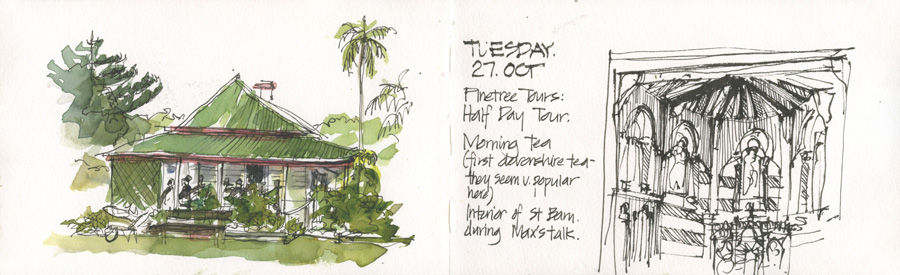 TUESDAY.
27. OCT
Pinetree Tours:
Half Day Tour.
Morning Tea
(first devonshire tea -
they seem v. popular
here)
Interior of St Barn.
during Max's talk.